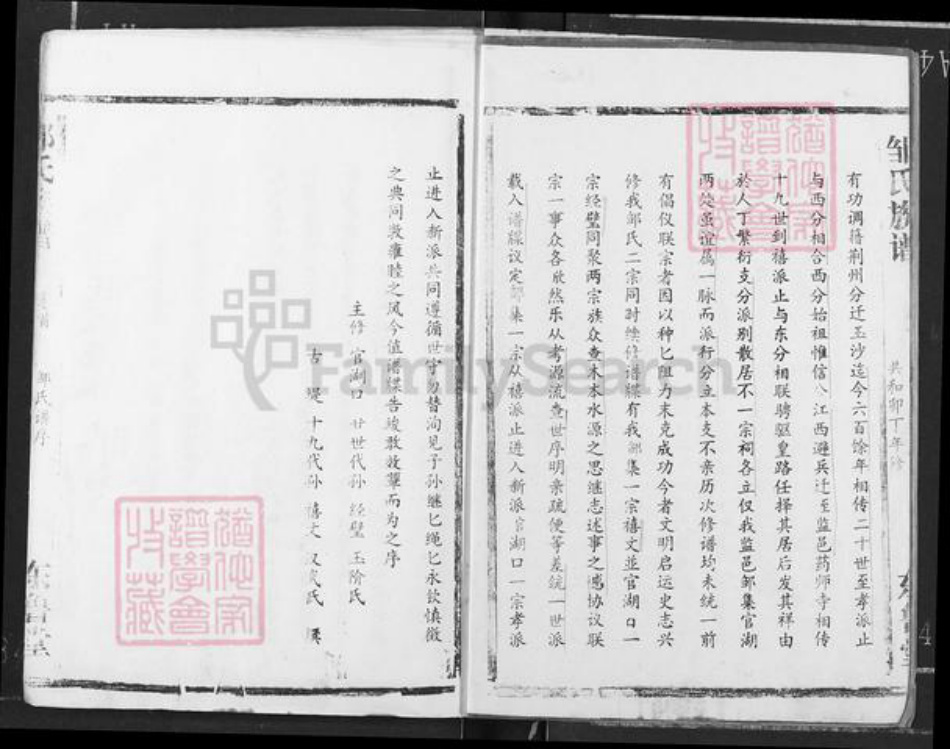 邹氏族谱
有功调籍荆州分迁玉沙迄今六百馀年相传二十世至孝派止
与西分相合西分始祖惟信公江西避兵迁至监邑药师寺相传
十九世到禧派止与东分相联骋驱皇路任择其居后发其祥由
於人丁繁衍支分派别散居不一宗祠各立仅我监邑邹集官湖
两处虽谊属一脉而派行分立本支不亲历次修谱均未统一前
有倡仪联宗者因以种匕阻力未克成功今者文明启运史志兴
修我邹氏二宗同时续修谱牒有我邹集一宗禧文並官湖口一
宗经璧同聚两宗族众查木本水源之思继志述事之感协议联
宗一事众各欣然乐从考源流查世序明亲疏便等差统一世派
载入谱牒议定邹集一宗从禧派止进入新派官湖口一宗孝派
止进入新派共同遵循世守勿替洵见子孙继匕绳匕永钦慎徽
之典同敦雍睦之风今值谱牒告竣敢敩颦而为之序
主修 官湖口 廿世代孙 经璧 玉阶氏
古 堤 十九代孙 禧文 汉
东鲁堂
FamilySearch